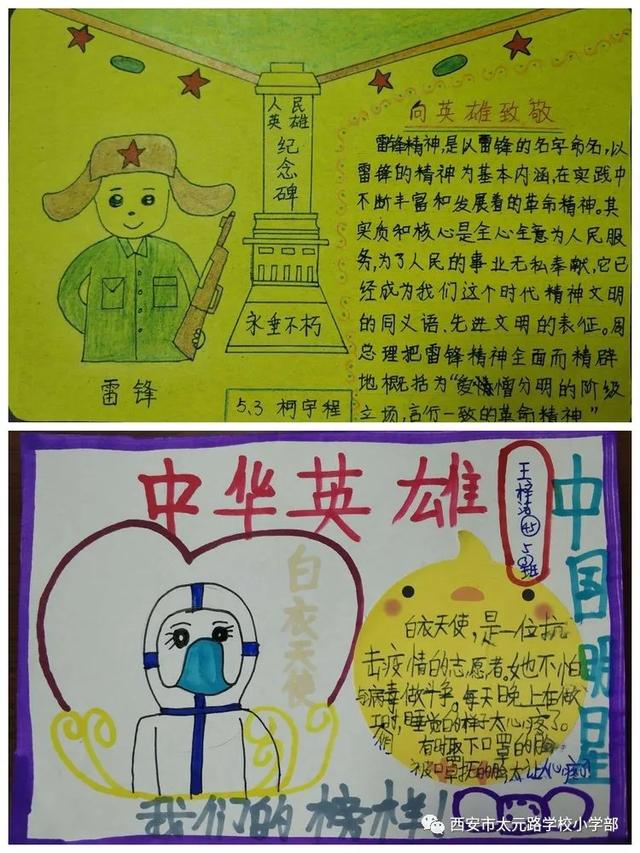 人民
英雄
纪
念
碑
永垂不朽
雷锋
5.3 柯宇程
向英雄致敬
雷锋精神,是以雷锋的名字命名,以
雷锋的精神为基本内涵,在实践中
不断丰富和发展着的革命精神。其
实质和核心是全心全意为人民服
务,为了人民的事业无私奉献,它已
经成为我们这个时代精神文明
的同义语、先进文明的表征。周
总理把雷锋精神全面而精辟
地概括为“爱憎分明的阶级
立场,言行一致的革命精神”
中华英雄
中国明星
白衣天使
白衣天使,是一位抗
击疫情的志愿者。她不怕
与病毒做斗争。每天晚上在做
工时,睡觉的样子太心疼了。
有时取下口罩的脸
被口罩抚的脸太让人心疼了
我们的榜样!
西安市太元路学校小学部